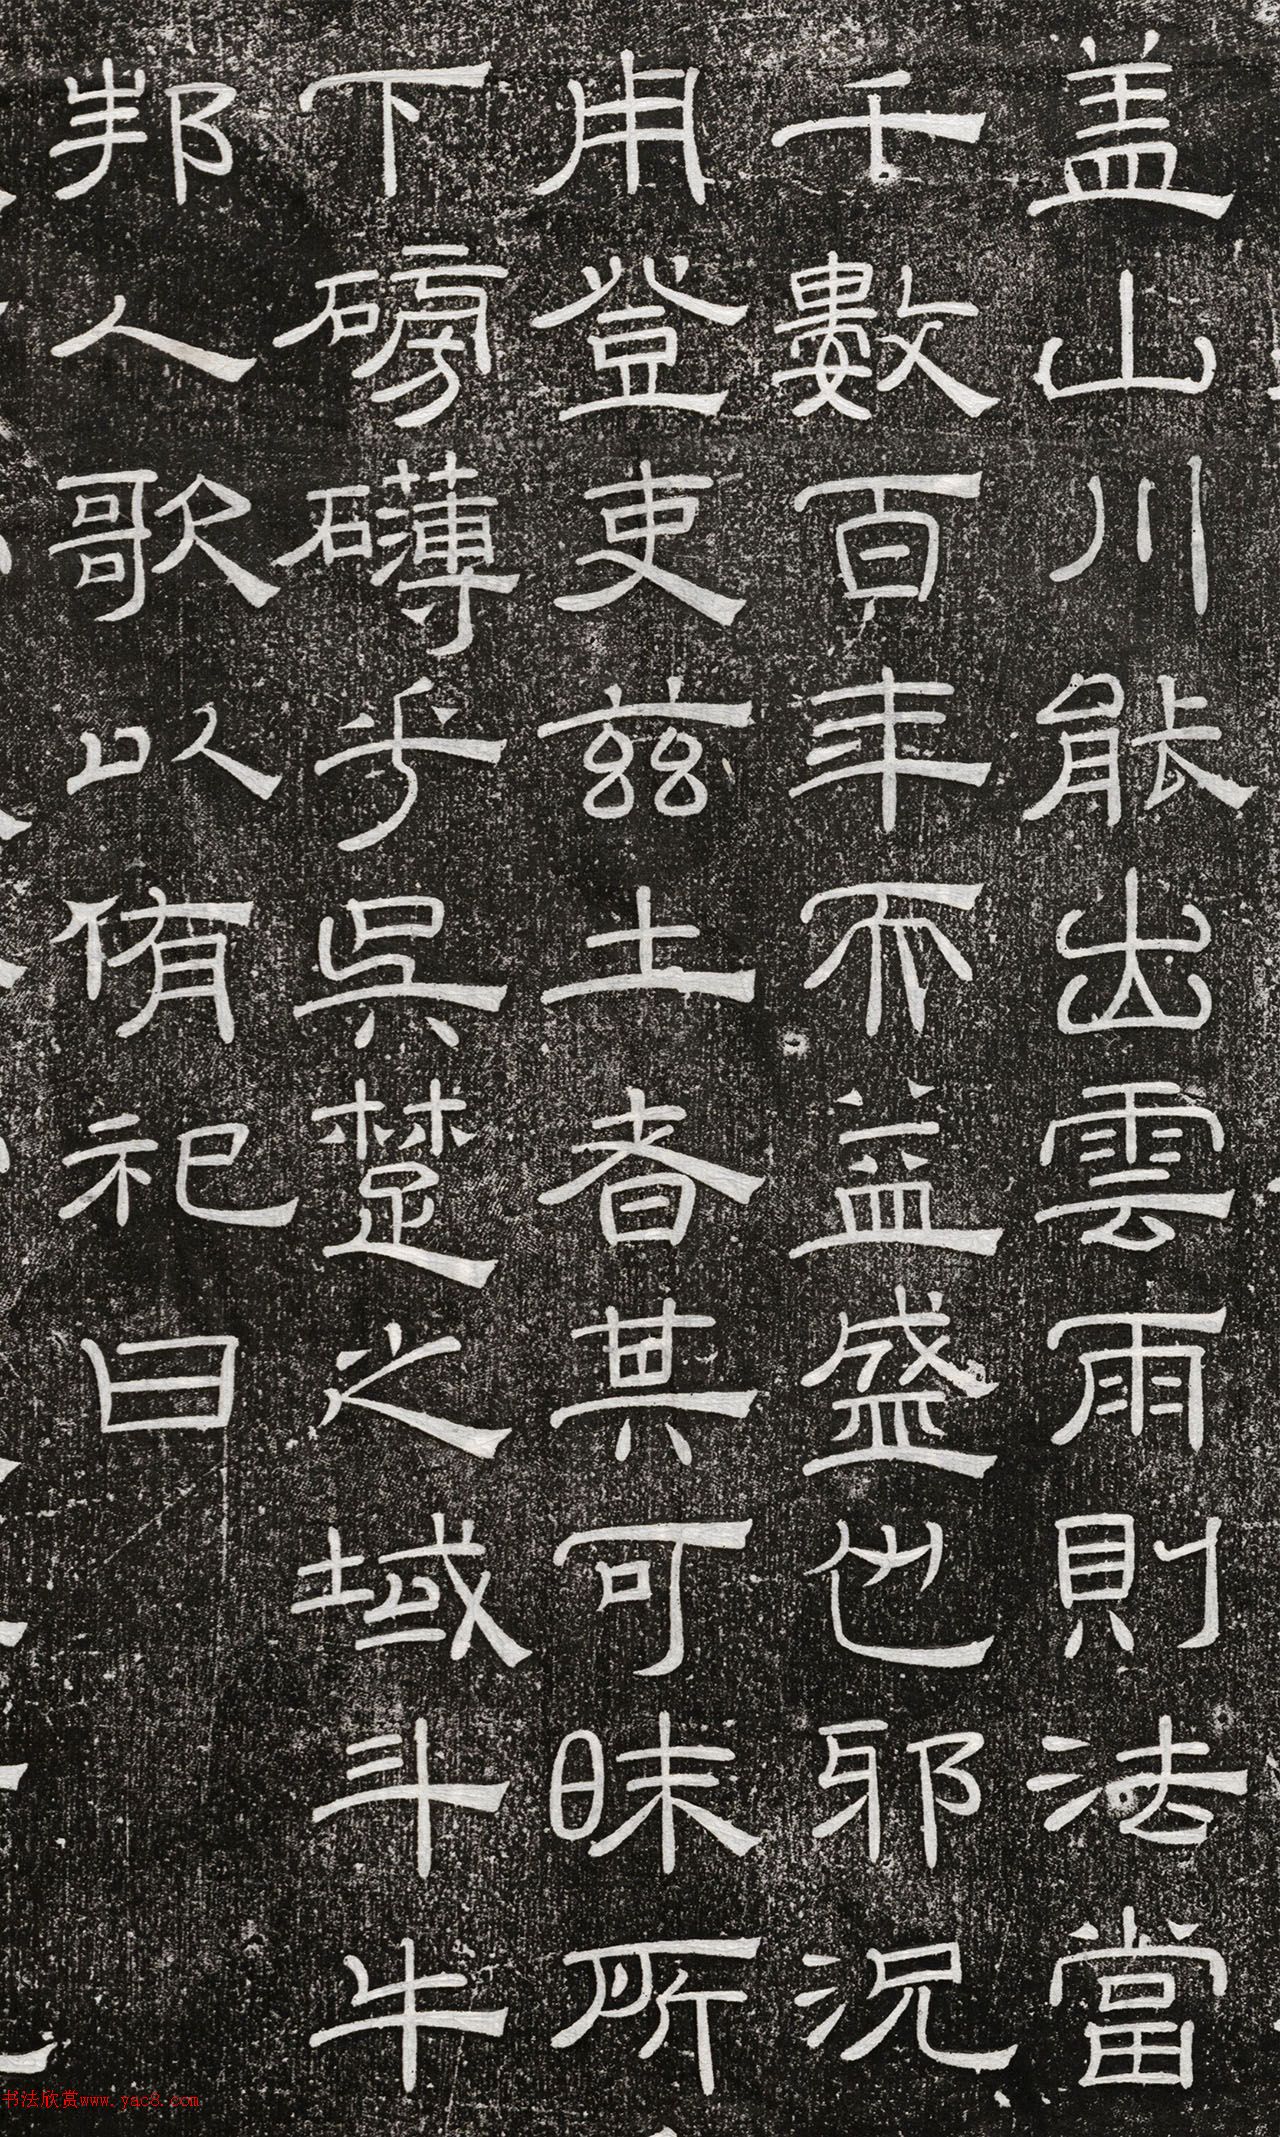 盖山川能出雲雨則法當
千數百年而益盛也邪況
用登吏兹土者其可昧所
下磅礴乎吳楚之域斗牛
邦人歌以侑祀曰
书法欣赏www.yac8.com